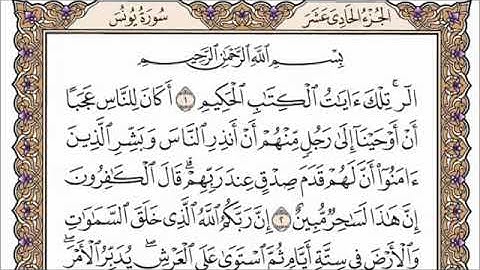 سُورَةُ يُونُسَ الجُزْءُ الحَادِى عَشَرَ
بِسْمِ اللَّهِ الرَّحْمَٰنِ الرَّحِيمِ
الٓر ۚ تِلْكَ ءَايَٰتُ ٱلْكِتَٰبِ ٱلْحَكِيمِ ١ أَكَانَ لِلنَّاسِ عَجَبًا
أَنْ أَوْحَيْنَآ إِلَىٰ رَجُلٍ مِّنْهُمْ أَنْ أَنذِرِ ٱلنَّاسَ وَبَشِّرِ ٱلَّذِينَ
ءَامَنُوٓا۟ أَنَّ لَهُمْ قَدَمَ صِدْقٍ عِندَ رَبِّهِمْ ۗ قَالَ ٱلْكَٰفِرُونَ
إِنَّ هَٰذَا لَسَٰحِرٌ مُّبِينٌ ٢ إِنَّ رَبَّكُمُ ٱللَّهُ ٱلَّذِى خَلَقَ ٱلسَّمَٰوَٰتِ
وَٱلْأَرْضَ فِى سِتَّةِ أَيَّامٍ ثُمَّ ٱسْتَوَىٰ عَلَى ٱلْعَرْشِ ۖ يُدَبِّرُ ٱلْأَمْرَ ۖ